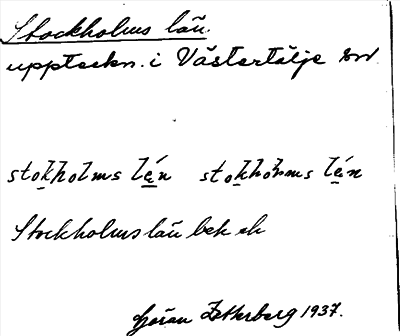 Stockholms län.
uppteckn. i Västertälje
stokholms lén stokhoms lén
Stockholms län bek
Göran Zetterberg 1937.